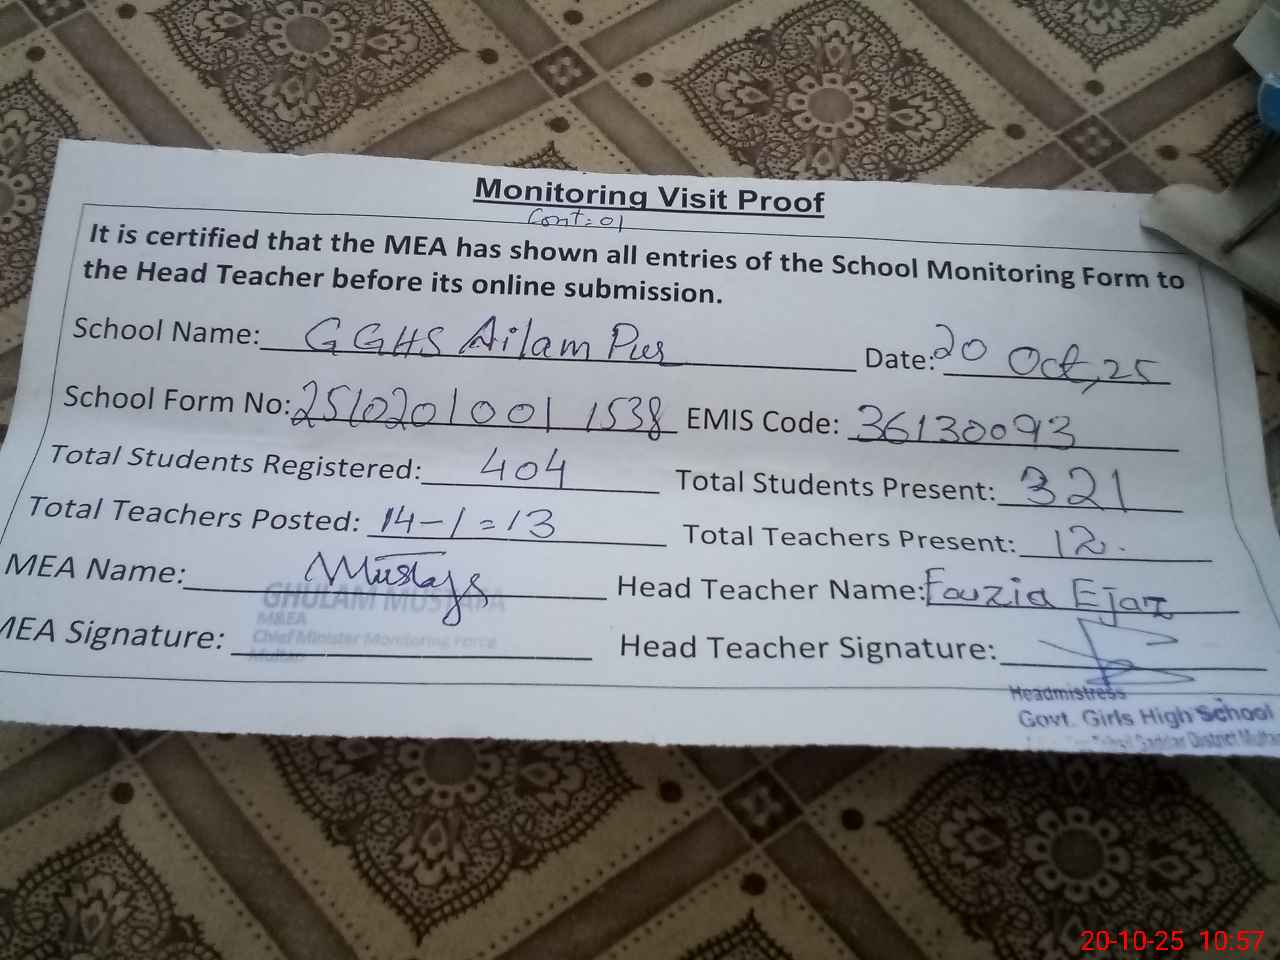 Monitoring Visit Proof
Cont: 01
It is certified that the MEA has shown all entries of the School Monitoring Form to
the Head Teacher before its online submission.
School Name: GGHS Ailam Pur Date: 20 Oct, 25
School Form No: 2510201001 1538 EMIS Code: 36130093
Total Students Registered: 404 Total Students Present: 321
Total Teachers Posted: 14-1=13 Total Teachers Present: 12.
MEA Name: Head Teacher Name: Fouzia Ejaz
GHULAM MUSTAFA
M&EA
MEA Signature: Head Teacher Signature:
Chief Minister Monitoring Force
Multan
Headmistress
Govt. Girls High School
District Multan
20-10-25 10:57